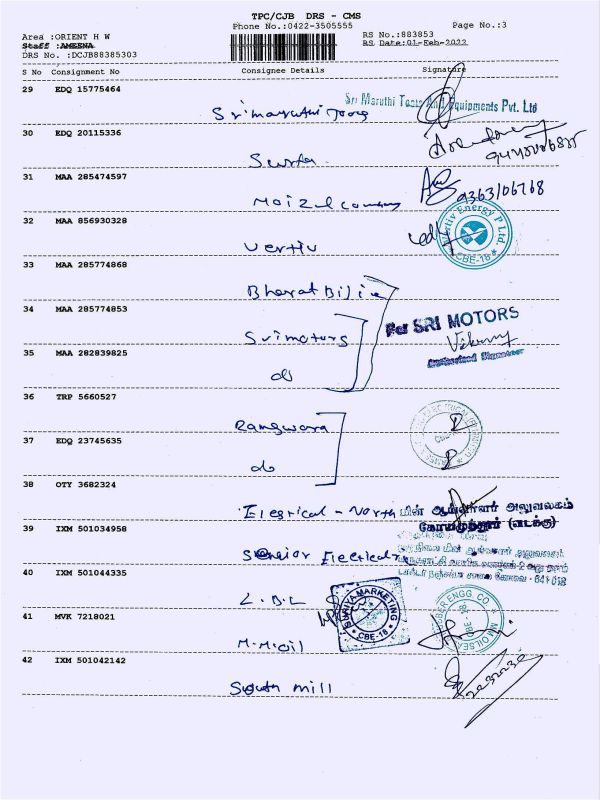 TPC/CJB DRS - CMS
Phone No.:0422-3505555
Page No.:3
Area :ORIENT H W
RS No.:883853
Staff :AMEENA
RS Date:01-Feb-2022
DRS No. :DCJB88385303
S No Consignment No Consignee Details Signature
29 EDQ 15775464
Sri Maruthi Tools And Equipments Pvt. Ltd
30 EDQ 20115336
31 MAA 285474597
9363106768
32 MAA 856930328
Vertiv
Vertiv Energy P Ltd.
CBE-18
33 MAA 285774868
Bharat Bijlie
34 MAA 285774853
Srimotors
For SRI MOTORS
Authorised Signatory
35 MAA 282839825
do
36 TRP 5660527
Rangwara
37 EDQ 23745635
do
38 OTY 3682324
Elecrical - North
மின் ஆய்வாளர் அலுவலகம்
கோயமுத்தூர் (வடக்கு)
39 IXM 501034958
Senior Electrical
641 018
40 IXM 501044335
L.B.L
SURIYA MARKETING
CBE-18
41 MVK 7218021
M.M.Oil
42 IXM 501042142
South mill